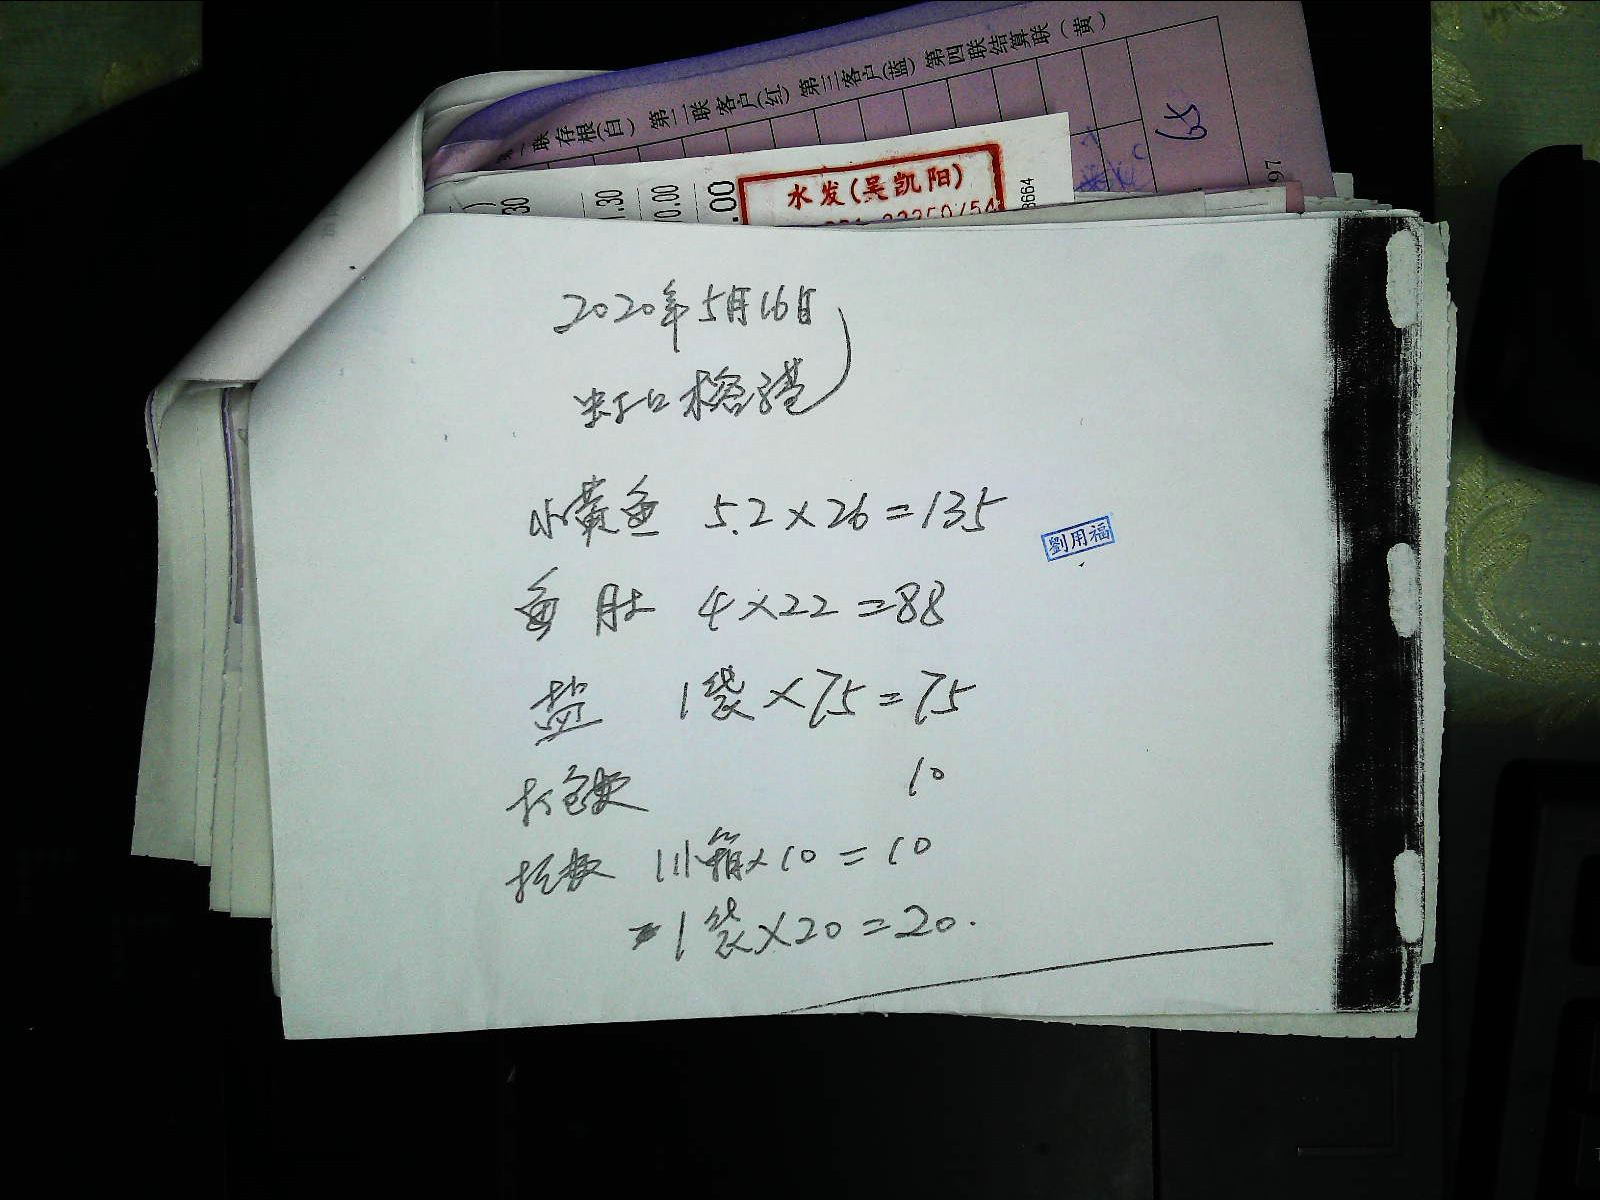 联 存根(白) 第二联客户(红) 第三客户(蓝) 第四联结算联(黄)
65
97
30
1.30
0.00
.00
水发(吴凯阳)
8664
2020年5月16日
虹口榕港
小黄鱼 5.2×26=135
鱼肚 4×22=88
劉用福
盐 1袋×75=75
打包费 10
托费 1小箱×10=10
1袋×20=20.